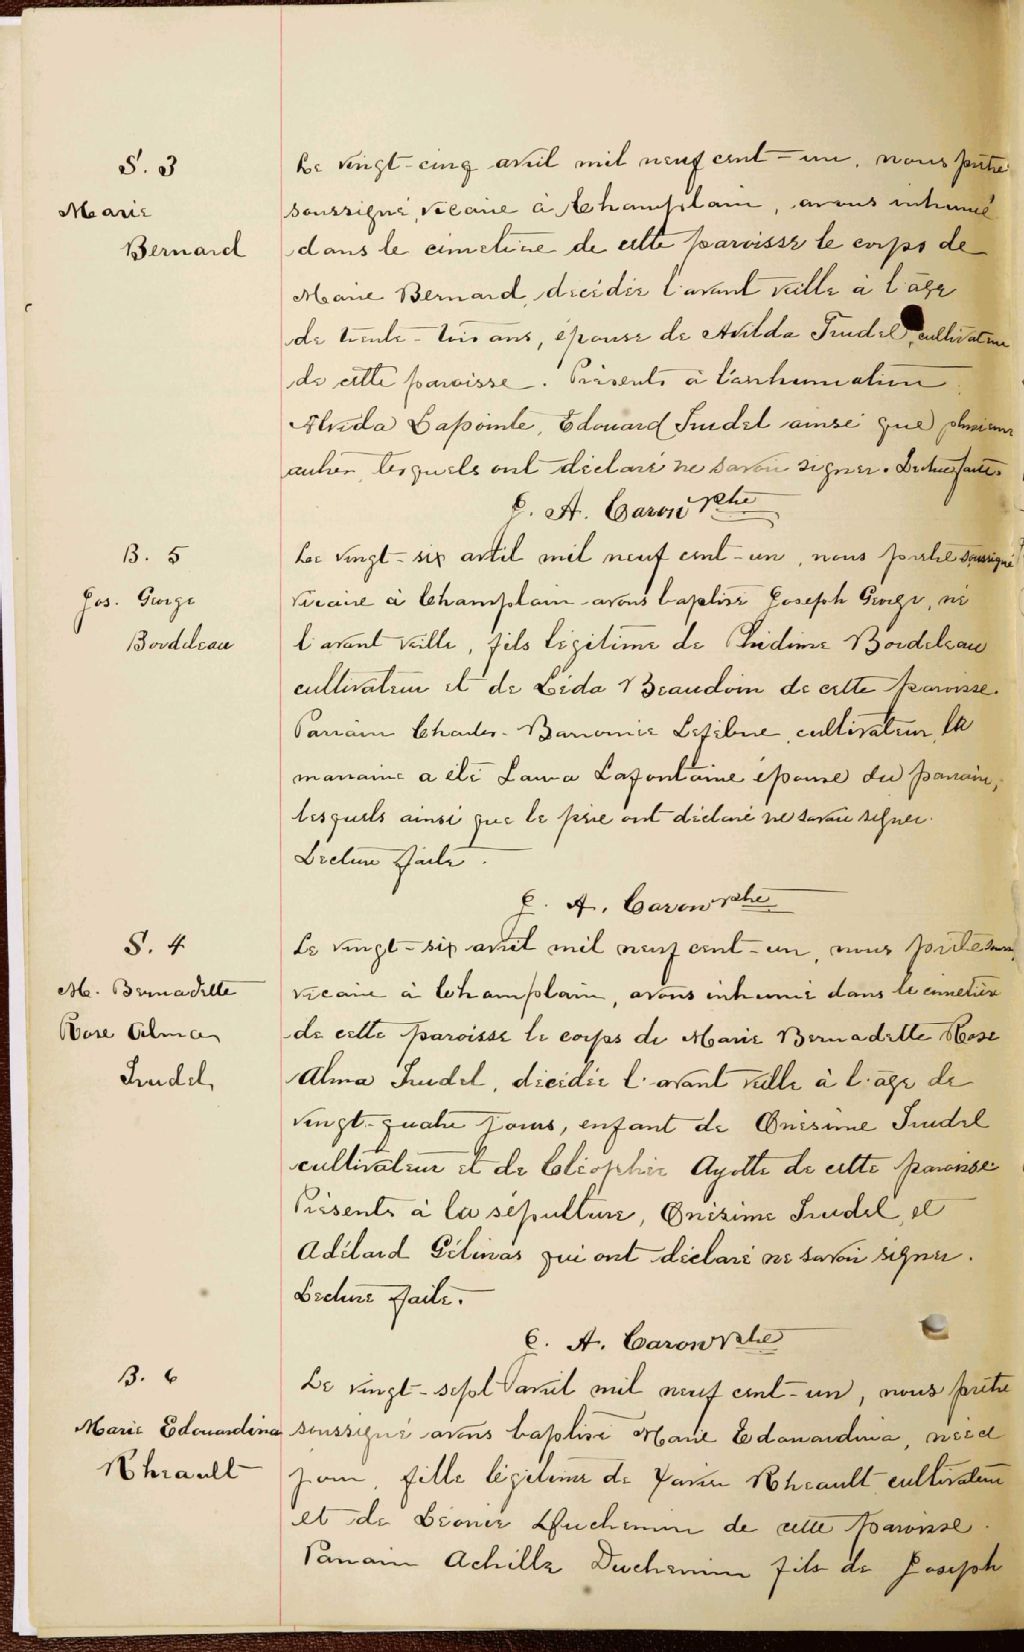 S. 3
Marie
Bernard
Le vingt-cinq avril mil neuf cent-un, nous prêtre
soussigné, vicaire à Champlain, avons inhumé
dans le cimetière de cette paroisse le corps de
Marie Bernard, décédée l'avant veille à l'âge
de trente-trois ans, épouse de Avilda Trudel, cultivateur
de cette paroisse. Présents à l'inhumation
Alvida Lapointe, Edouard Trudel ainsi que plusieurs
autres, lesquels ont déclaré ne savoir signer. Lecture faite.
E. A. Caron Ptre
B. 5
Jos. George
Bordeleau
Le vingt-six avril mil neuf cent-un, nous prêtre soussigné
vicaire à Champlain avons baptisé Joseph George, né
l'avant veille, fils légitime de Phidime Bordeleau
cultivateur et de Léda Beaudoin de cette paroisse.
Parrain Charles-Barromée Lefebvre, cultivateur, la
marraine a été Laura Lafontaine épouse du parrain,
lesquels ainsi que le père ont déclaré ne savoir signer.
Lecture faite.
E. A. Caron Ptre
S. 4
M. Bernadette
Rose Alma
Trudel
Le vingt-six avril mil neuf cent-un, nous prêtre
vicaire à Champlain, avons inhumé dans le cimetière
de cette paroisse le corps de Marie Bernadette Rose
Alma Trudel, décédée l'avant veille à l'âge de
vingt-quatre jours, enfant de Onésime Trudel
cultivateur et de Cléophée Ayotte de cette paroisse.
Présents à la sépulture, Onésime Trudel, et
Adélard Gélinas qui ont déclaré ne savoir signer.
Lecture faite.
E. A. Caron Ptre
B. 6
Marie Edouardina
Rheault
Le vingt-sept avril mil neuf cent-un, nous prêtre
soussigné avons baptisé Marie Edouardina, née ce
jour, fille légitime de Xavier Rheault cultivateur
et de Léonie Duchemin de cette paroisse.
Parrain Achille Duchemin fils de Joseph